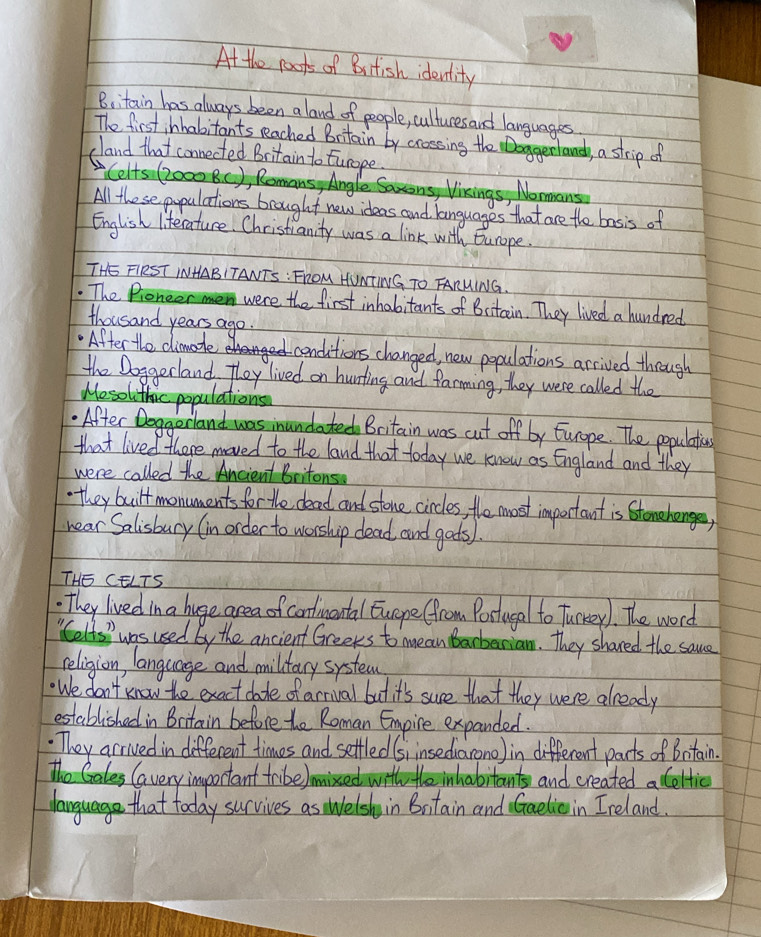 At the roots of British identity
Britain has always been a land of people, cultures and languages.
The first inhabitants reached Britain by crossing the Doggerland, a strip of
land that connected Britain to Europe.
Celts (2000 B.C), Romans, Angle Saxons, Vikings, Normans.
All these populations brought new ideas and languages that are the basis of
English literature. Christianity was a link with Europe.
THE FIRST INHABITANTS: FROM HUNTING TO FARMING.
• The Pioneer men were the first inhabitants of Britain. They lived a hundred
thousand years ago.
• After the climate changed conditions changed, new populations arrived through
the Doggerland. They lived on hunting and farming, they were called the
Mesolithic populations
• After Doggerland was inundated Britain was cut off by Europe. The populations
that lived there moved to the land that today we know as England and they
were called the Ancient Britons.
• They built monuments for the dead and stone circles, the most important is Stonehenge,
near Salisbury (in order to worship dead and gods).
THE CELTS
• They lived in a huge area of continental Europe (from Portugal to Turkey). The word
"Celts" was used by the ancient Greeks to mean Barbarian. They shared the same
religion, language and military system
• We don't know the exact date of arrival but it's sure that they were already
established in Britain before the Roman Empire expanded.
• They arrived in different times and settled (si insediarono) in different parts of Britain.
The Gales (a very important tribe) mixed with the inhabitants and created a Celtic
language that today survives as Welsh in Britain and Gaelic in Ireland.